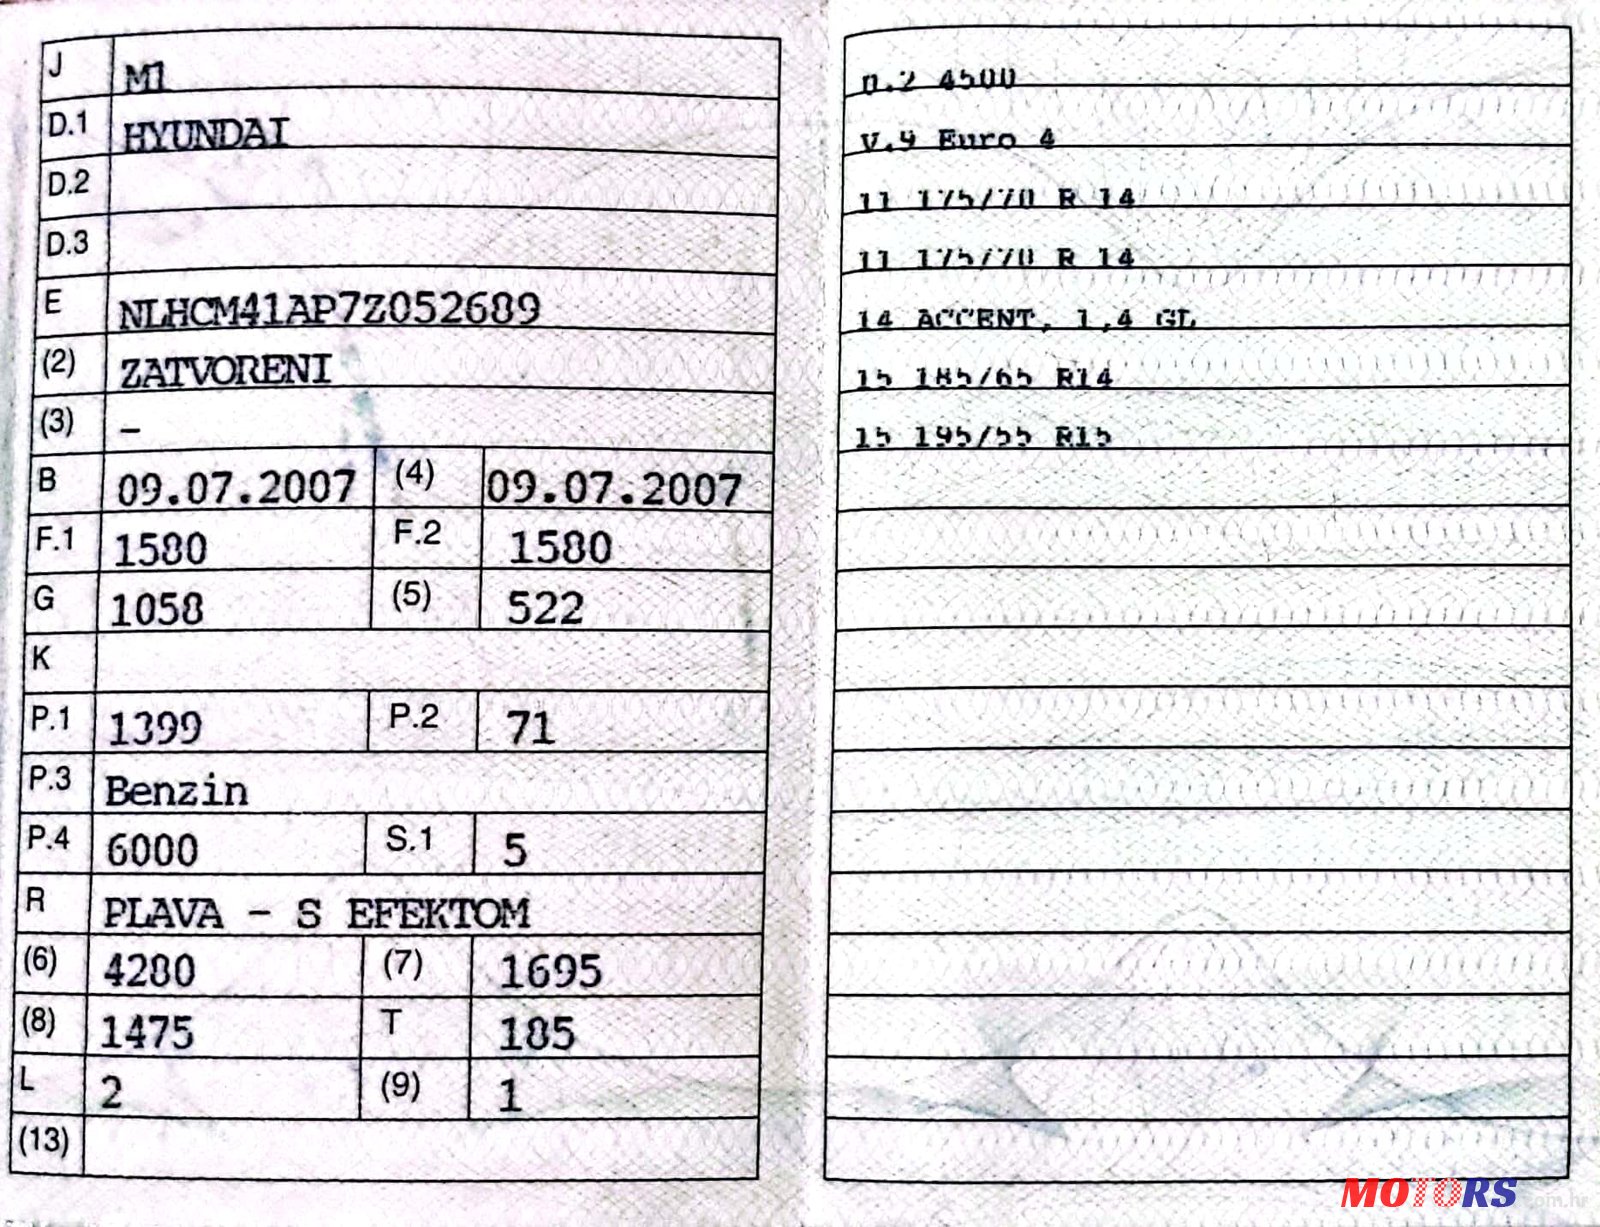 J M1
D.1 HYUNDAI
D.2
D.3
E NLHCM41AP7Z052689
(2) ZATVORENI
(3) –
B 09.07.2007 (4) 09.07.2007
F.1 1580 F.2 1580
G 1058 (5) 522
K
P.1 1399 P.2 71
P.3 Benzin
P.4 6000 S.1 5
R PLAVA - S EFEKTOM
(6) 4280 (7) 1695
(8) 1475 T 185
L 2 (9) 1
(13)
n.2 4500
V.9 Euro 4
11 175/70 R 14
11 175/70 R 14
14 ACCENT, 1,4 GL
15 185/65 R14
15 195/55 R15
MOTORS.com.hr